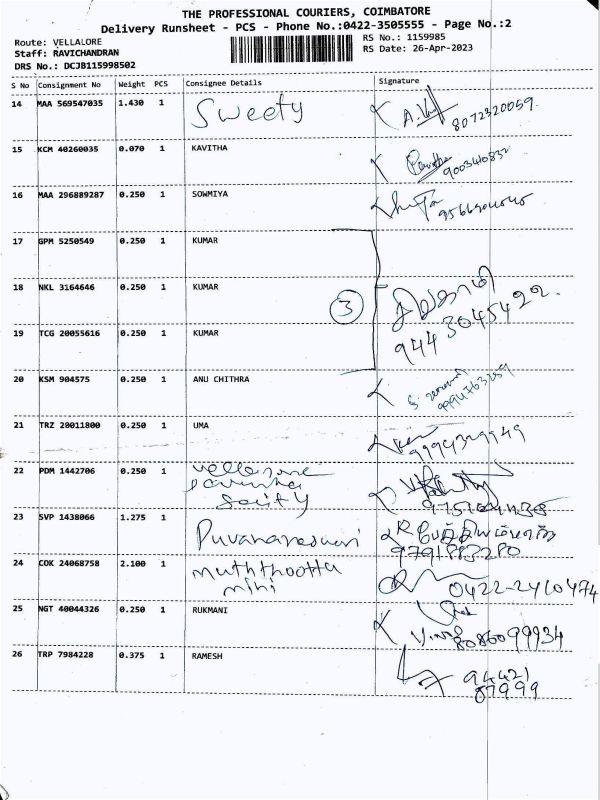 THE PROFESSIONAL COURIERS, COIMBATORE
Delivery Runsheet - PCS - Phone No.:0422-3505555 - Page No.:2
Route: VELLALORE
Staff: RAVICHANDRAN
DRS No.: DCJB115998502
RS No.: 1159985
RS Date: 26-Apr-2023
S No Consignment No Weight PCS Consignee Details Signature
14 MAA 569547035 1.430 1 Sweety
8072320059
15 KCM 40260035 0.070 1 KAVITHA
16 MAA 296889287 0.250 1 SOWMIYA
17 GPM 5250549 0.250 1 KUMAR
18 NKL 3164646 0.250 1 KUMAR
3
9443045422
19 TCG 20055616 0.250 1 KUMAR
20 KSM 904575 0.250 1 ANU CHITHRA
21 TRZ 20011800 0.250 1 UMA
22 PDM 1442706 0.250 1
23 SVP 1438066 1.275 1 Puvaneswari
24 COK 24068758 2.100 1 Muththootta
mini
0422-2410474
25 NGT 40044326 0.250 1 RUKMANI
8086099934
26 TRP 7984228 0.375 1 RAMESH
94421
87999